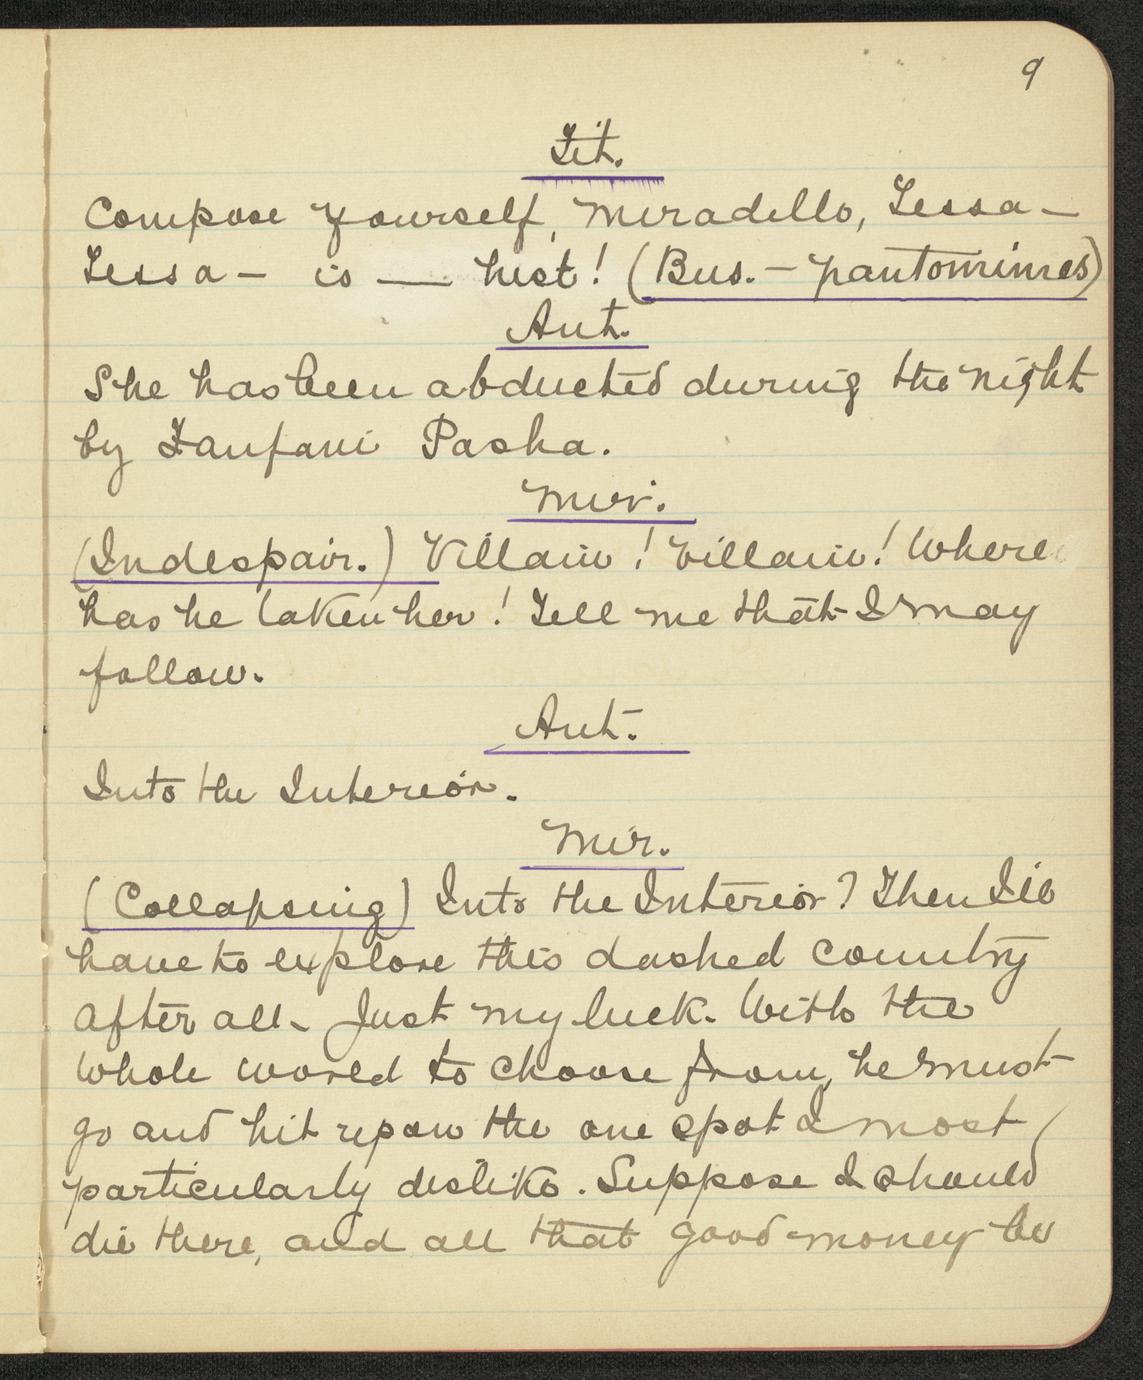 9
Tit.
Compose yourself, Miradello, Tessa —
Tessa — is — hist! (Bus. — pantomimes)
Ant.
She has been abducted during the night
by Fanfani Pasha.
Mir.
(In despair.) Villain! Villain! Where
has he taken her! Tell me that I may
follow.
Ant.
Into the Interior.
Mir.
(Collapsing) Into the Interior? Then I'll
have to explore this dashed country
after all. Just my luck. With the
whole world to choose from, he must
go and hit upon the one spot I most
particularly dislike. Suppose I should
die there, and all that good money be